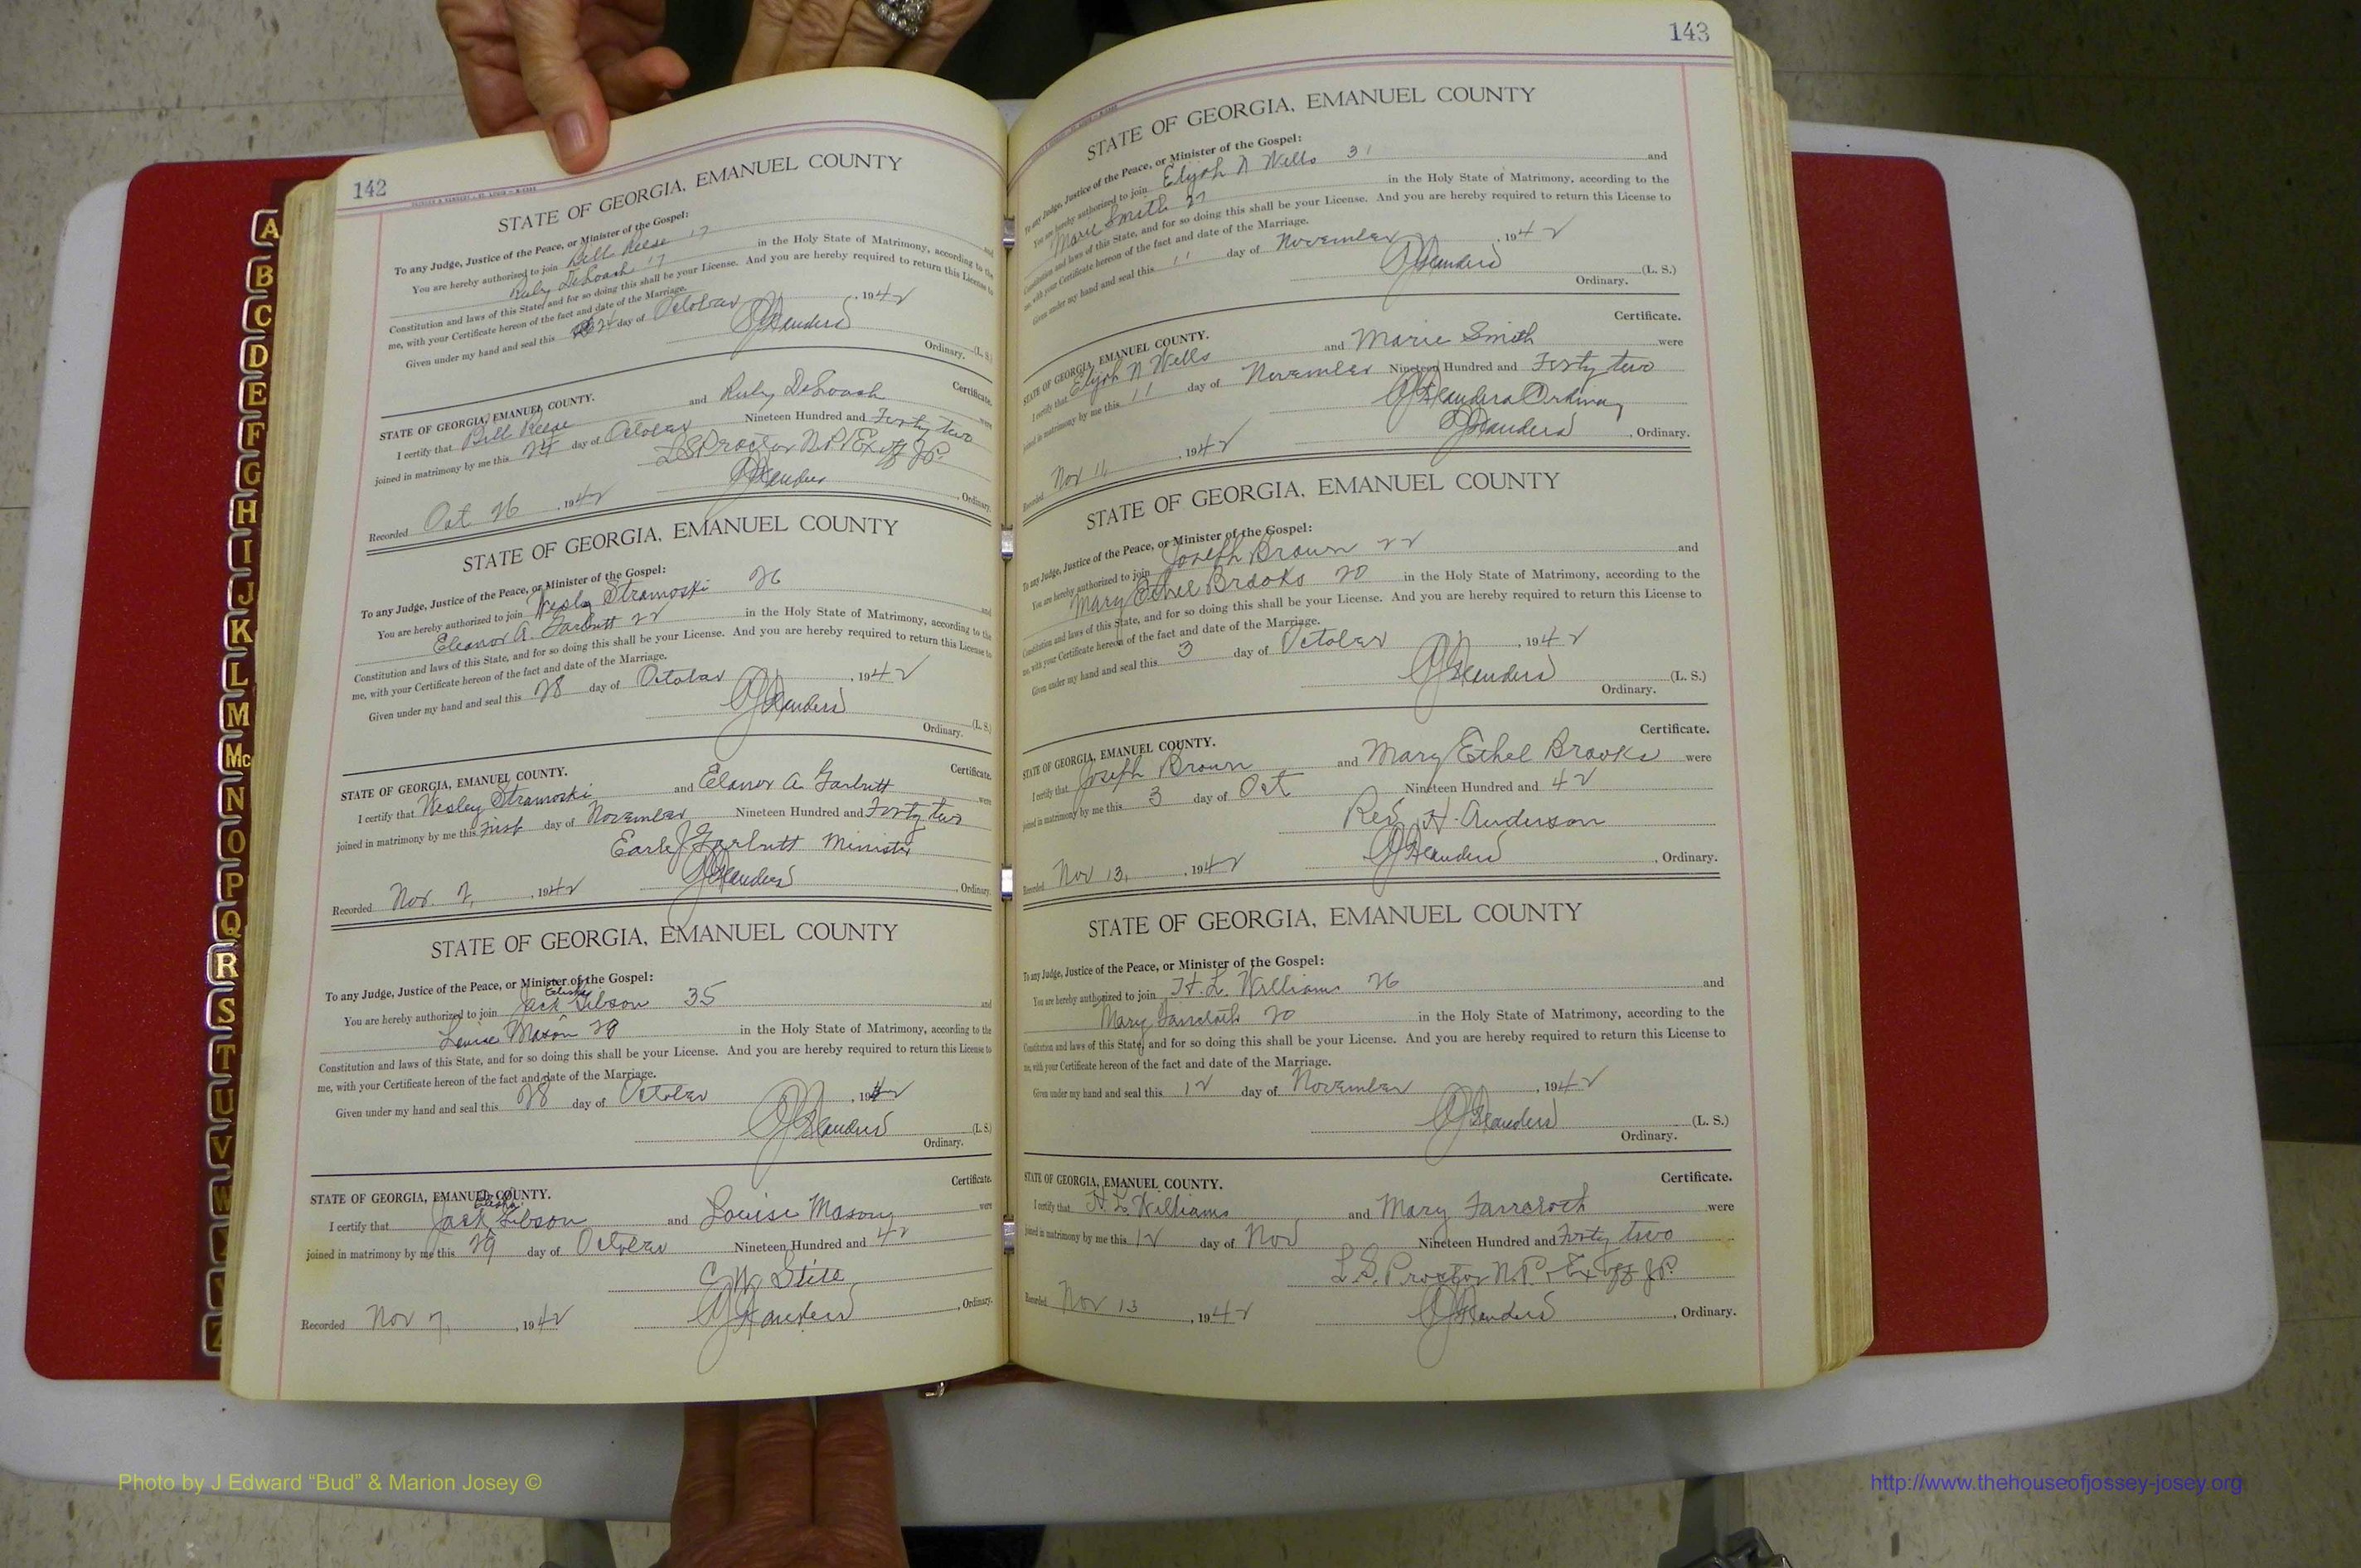 142
STATE OF GEORGIA, EMANUEL COUNTY
To any Judge, Justice of the Peace, or Minister of the Gospel:
You are hereby authorized to join Bill Reese 17 and
Ruby DeLoach 17 in the Holy State of Matrimony, according to the
Constitution and laws of this State, and for so doing this shall be your License. And you are hereby required to return this License to
me, with your Certificate hereon of the fact and date of the Marriage.
Given under my hand and seal this 24 day of October, 1942
(L. S.)
Ordinary.
Certificate.
STATE OF GEORGIA, EMANUEL COUNTY.
I certify that Bill Reese and Ruby DeLoach were
joined in matrimony by me this 24 day of October Nineteen Hundred and Forty two
L S Proctor N.P. & Ex off J.P.
Recorded Oct 26, 1942 , Ordinary.
STATE OF GEORGIA, EMANUEL COUNTY
To any Judge, Justice of the Peace, or Minister of the Gospel:
You are hereby authorized to join Wesley Stramoski 26 and
Eleanor A. Garbutt 22 in the Holy State of Matrimony, according to the
Constitution and laws of this State, and for so doing this shall be your License. And you are hereby required to return this License to
me, with your Certificate hereon of the fact and date of the Marriage.
Given under my hand and seal this 28 day of October, 1942
(L. S.)
Ordinary.
Certificate.
STATE OF GEORGIA, EMANUEL COUNTY.
I certify that Wesley Stramoski and Elanor A Garbutt were
joined in matrimony by me this First day of November Nineteen Hundred and Forty two
Earle J Garbutt Minister
Recorded Nov. 2, 1942 , Ordinary.
STATE OF GEORGIA, EMANUEL COUNTY
To any Judge, Justice of the Peace, or Minister of the Gospel:
Elisha
You are hereby authorized to join Jack Gibson 35 and
Louise Mason 28 in the Holy State of Matrimony, according to the
Constitution and laws of this State, and for so doing this shall be your License. And you are hereby required to return this License to
me, with your Certificate hereon of the fact and date of the Marriage.
Given under my hand and seal this 28 day of October, 1942
(L. S.)
Ordinary.
Certificate.
STATE OF GEORGIA, EMANUEL COUNTY.
Elisha
I certify that Jack Gibson and Louise Mason were
joined in matrimony by me this 29 day of October Nineteen Hundred and 42
Recorded Nov 7, 1942 , Ordinary.
143
STATE OF GEORGIA, EMANUEL COUNTY
To any Judge, Justice of the Peace, or Minister of the Gospel:
You are hereby authorized to join Elijah N Wells 31 and
Marie Smith 27 in the Holy State of Matrimony, according to the
Constitution and laws of this State, and for so doing this shall be your License. And you are hereby required to return this License to
me, with your Certificate hereon of the fact and date of the Marriage.
Given under my hand and seal this 11 day of November, 1942
(L. S.)
Ordinary.
Certificate.
STATE OF GEORGIA, EMANUEL COUNTY.
I certify that Elijah N Wells and Marie Smith were
joined in matrimony by me this 11 day of November Nineteen Hundred and Forty two
Ordinary
Recorded Nov 11, 1942 , Ordinary.
STATE OF GEORGIA, EMANUEL COUNTY
To any Judge, Justice of the Peace, or Minister of the Gospel:
You are hereby authorized to join Joseph Brown 22 and
Mary Ethel Brooks 20 in the Holy State of Matrimony, according to the
Constitution and laws of this State, and for so doing this shall be your License. And you are hereby required to return this License to
me, with your Certificate hereon of the fact and date of the Marriage.
Given under my hand and seal this 3 day of October, 1942
(L. S.)
Ordinary.
Certificate.
STATE OF GEORGIA, EMANUEL COUNTY.
I certify that Joseph Brown and Mary Ethel Brooks were
joined in matrimony by me this 3 day of Oct Nineteen Hundred and 42
Rev. H. Anderson
Recorded Nov 13, 1942 , Ordinary.
STATE OF GEORGIA, EMANUEL COUNTY
To any Judge, Justice of the Peace, or Minister of the Gospel:
You are hereby authorized to join H. L. Williams 26 and
Mary Faircloth 20 in the Holy State of Matrimony, according to the
Constitution and laws of this State, and for so doing this shall be your License. And you are hereby required to return this License to
me, with your Certificate hereon of the fact and date of the Marriage.
Given under my hand and seal this 12 day of November, 1942
(L. S.)
Ordinary.
Certificate.
STATE OF GEORGIA, EMANUEL COUNTY.
I certify that H. L. Williams and Mary Farrcloth were
joined in matrimony by me this 12 day of Nov Nineteen Hundred and Forty two
L. S. Proctor N.P. & Ex off J.P.
Recorded Nov 13, 1942 , Ordinary.
A
B
C
D
E
F
G
H
I
J
K
L
M
Mc
N
O
P
Q
R
S
T
U
V
W
Z
Photo by J Edward “Bud” & Marion Josey ©
http://www.thehouseofjossey-josey.org